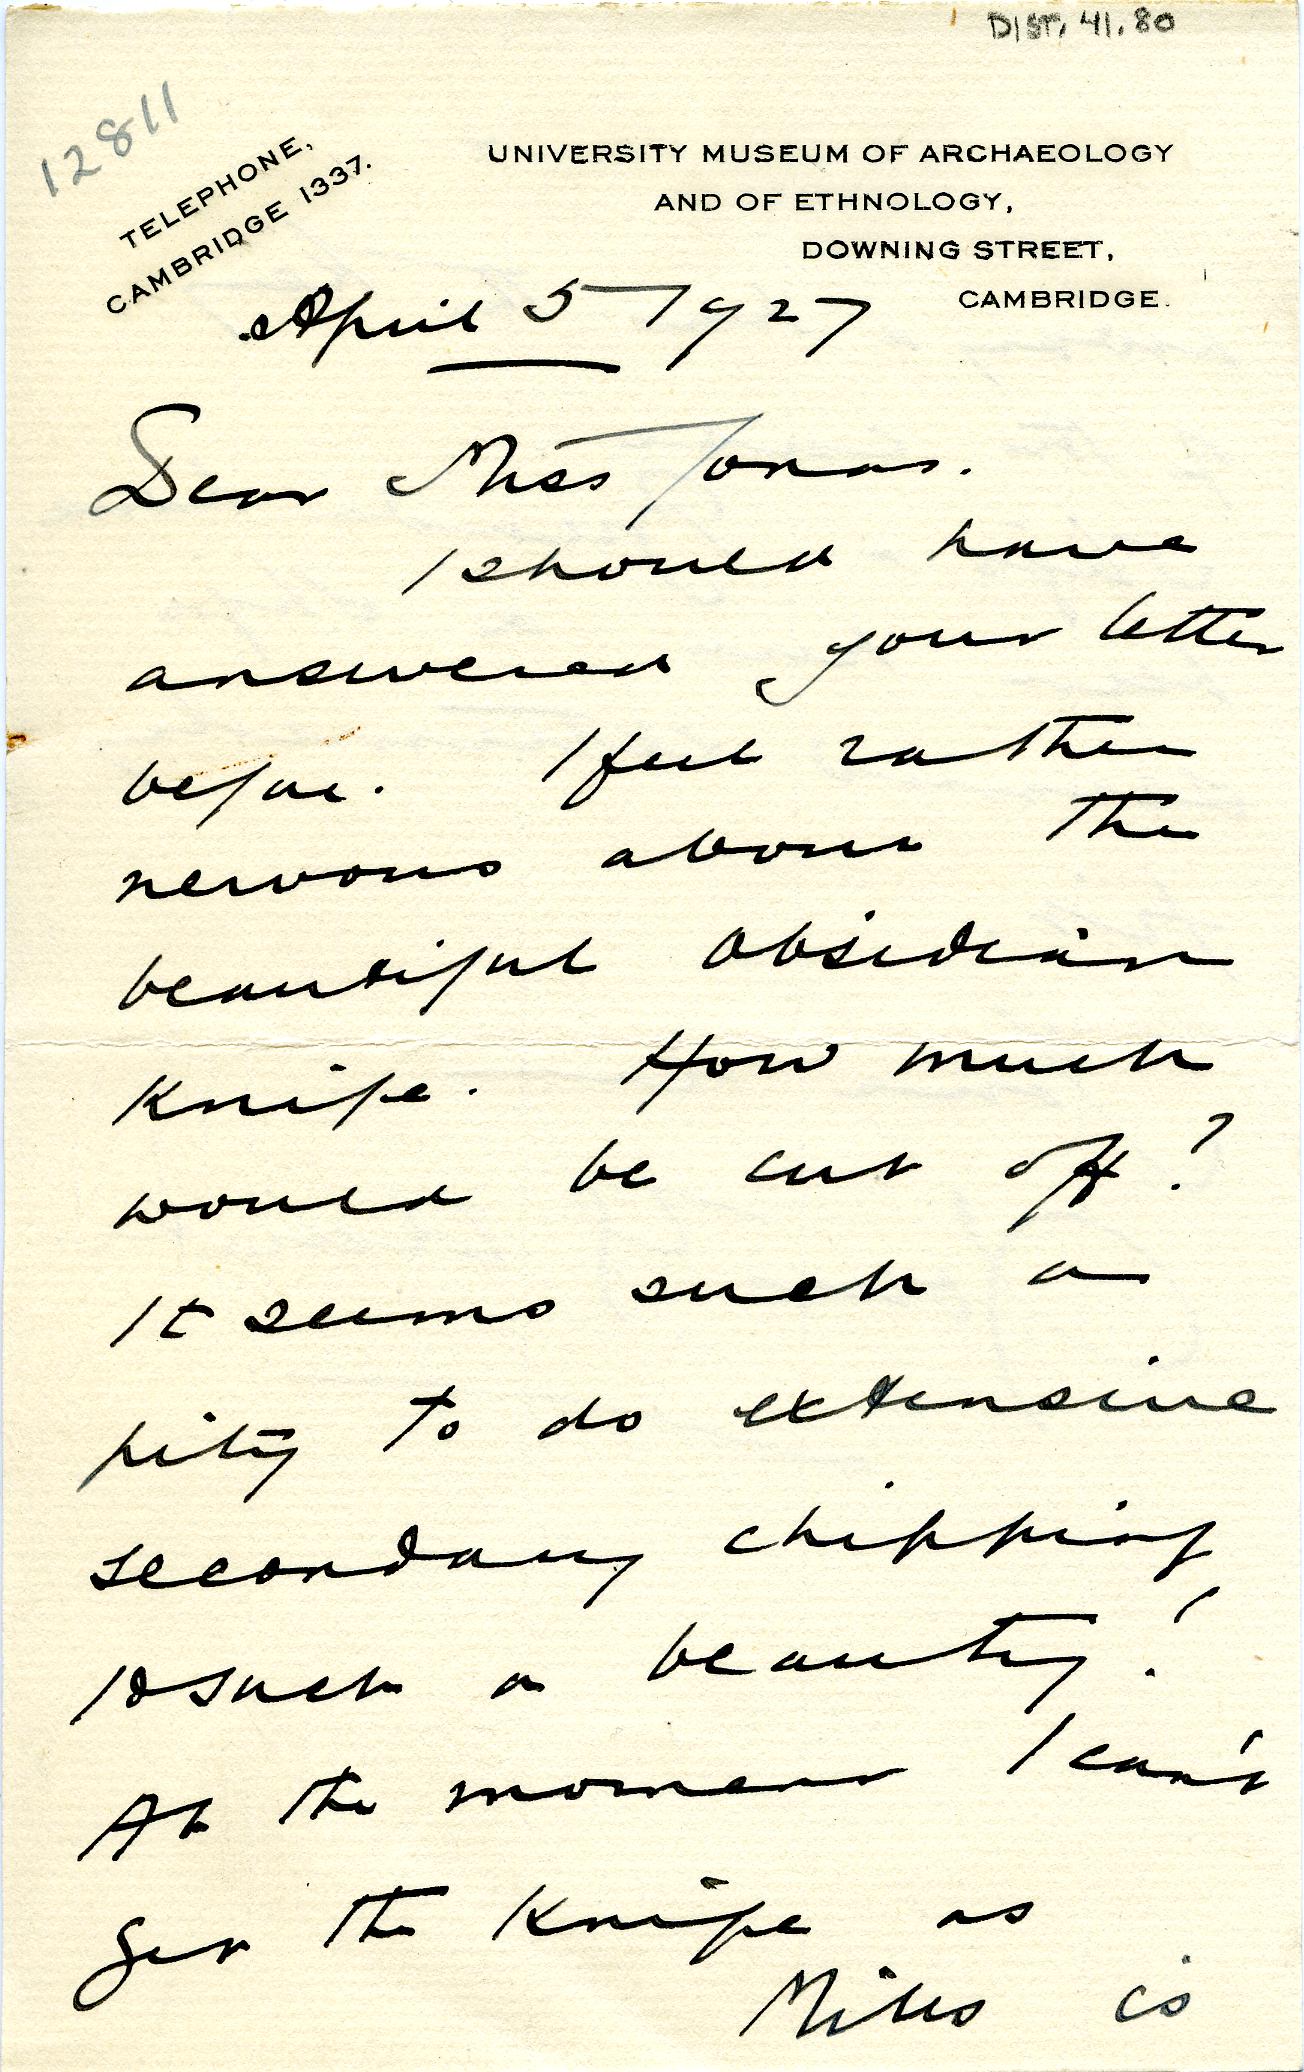 DIST. 41.80
12811
TELEPHONE,
CAMBRIDGE 1337.
UNIVERSITY MUSEUM OF ARCHAEOLOGY
AND OF ETHNOLOGY,
DOWNING STREET,
CAMBRIDGE.
April 5 1927
Dear Miss Jonas.
I should have
answered your letter
before. I feel rather
nervous about the
beautiful obsidian
Knife. How much
would be cut off?
It seems such a
pity to do extensive
secondary chipping
to such a beauty!
At the moment I can't
get the Knife as
Miles is